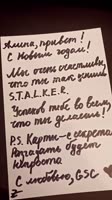 Алина, привет!
С Новым годом!
Мы очень счастливы,
что ты так ценишь
S.T.A.L.K.E.R.
Успехов тебе во всем,
что ты делаешь!
P.S. Карти
секрета
будет
С любовью, GSC